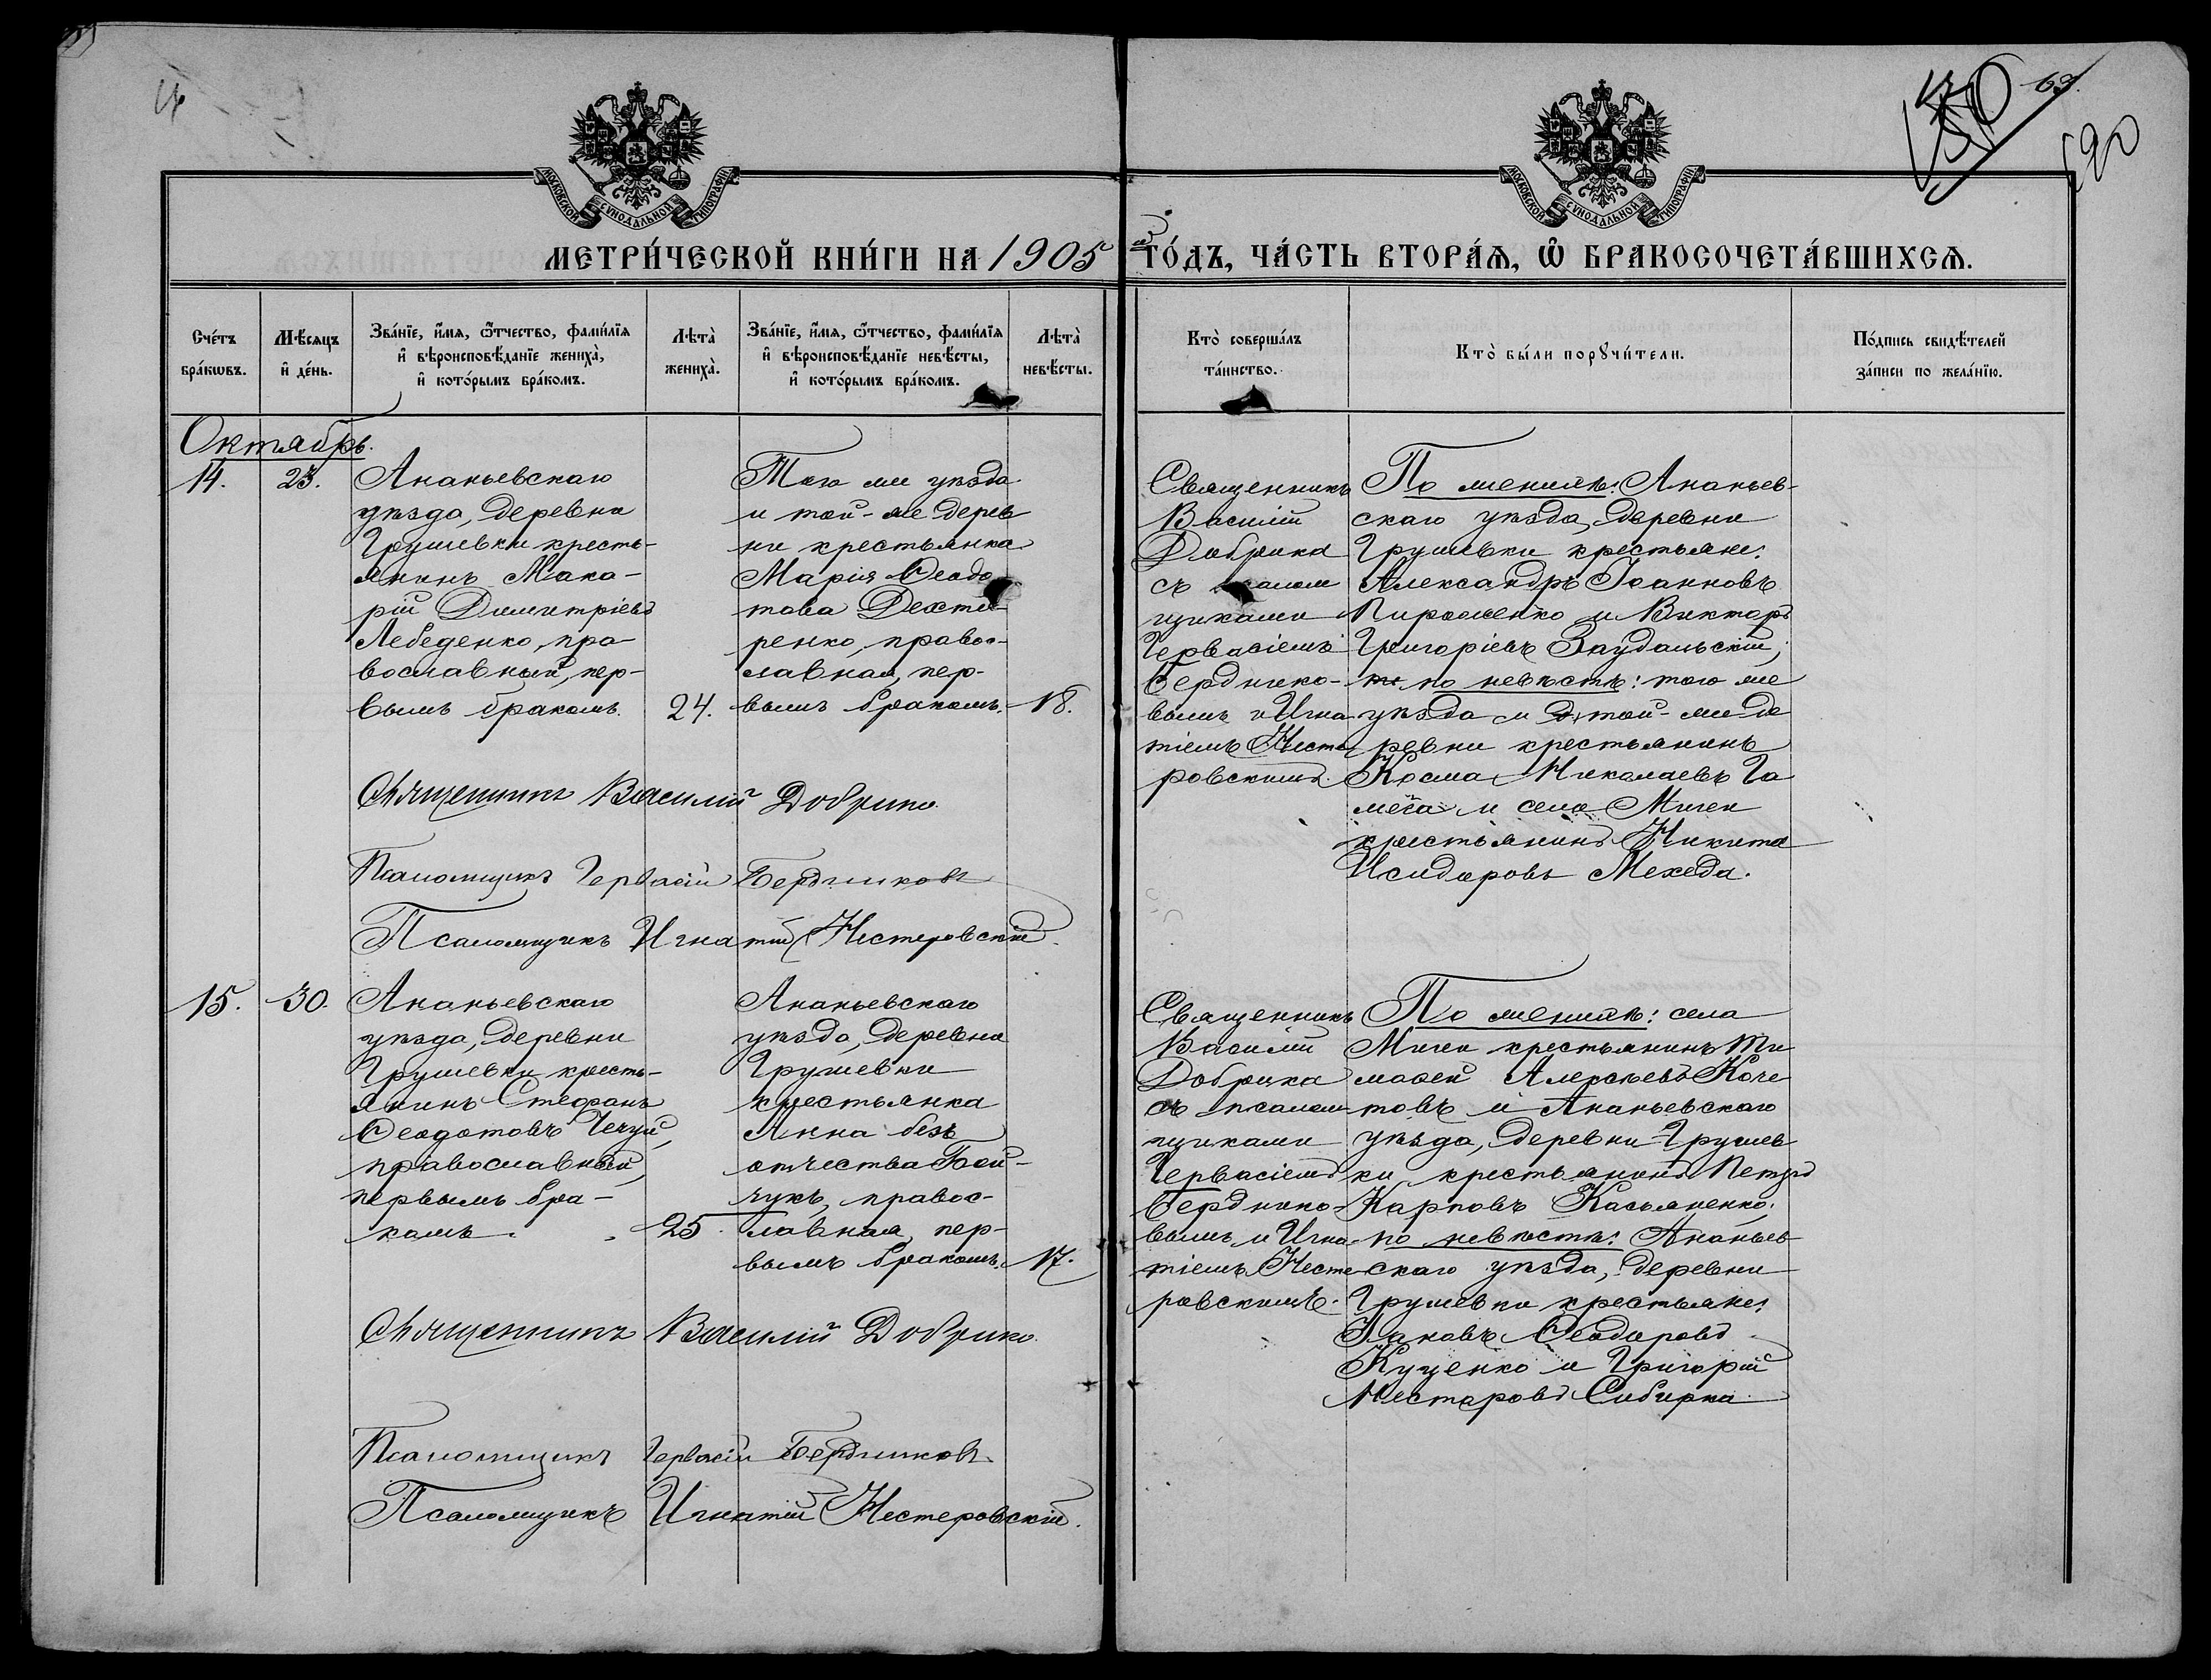 63.
590
МОСКОВСКОЙ СѴНОДАЛЬНОЙ ТИПОГРАФІИ
МОСКОВСКОЙ СѴНОДАЛЬНОЙ ТИПОГРАФІИ
МЕТРИ́ЧЕСКОЙ КНИ́ГИ НА 1905 ГО́ДЪ, ЧА́СТЬ ВТОРА́Ѧ, Ѿ БРАКОСОЧЕТА́ВШИХСѦ.
Сче́тъ
бра́кѡвъ.
Мѣ́сяцъ
и҆ де́нь.
Зва́нїе, и҆́мя, ѻ҆́тчество, фами́лїя
и҆ вѣроисповѣ́данїе жениха̀,
и҆ кото́рымъ бра́комъ.
Лѣта̀
жениха̀.
Зва́нїе, и҆́мя, ѻ҆́тчество, фами́лїя
и҆ вѣроисповѣ́данїе невѣ́сты,
и҆ кото́рымъ бра́комъ.
Лѣта̀
невѣ́сты.
Кто̀ соверша́лъ
та́инство.
Кто̀ бы́ли порꙋчи́тели.
По́дпись свидѣ́телей
за́писи по жела́нїю.
Октябрь.
14.
23.
Ананьевскаго
уѣзда, деревни
Грушевки кресть-
янинъ Мака-
рій Димитріевъ
Лебеденко, пра-
вославный, пер-
вымъ бракомъ.
24.
Того же уѣзда
и той-же дерев
ни крестьянка
Марія Ѳеодо
това Дехтя-
ренко, правос-
лавная, пер-
вымъ бракомъ.
18.
Священникъ
Василій
Добрика
съ псалом
щиками
Гервасіемъ
Берднико-
вымъ и Игна
тіемъ Несте
ровскимъ.
По женихѣ: Ананьев-
скаго уѣзда, деревни
Грушевки крестьяне:
Александръ Іоанновъ
Пироженко и Викторъ
Григоріевъ Заудальскій;
по невѣстѣ: того же
уѣзда и той-же де
ревни крестьянинъ
Косма Николаевъ Га
и села Мигеи
крестьянинъ Никита
Исидоровъ Мехеда.
Священникъ Василій Добрика
Псаломщикъ Гервасій Бердниковъ
Псаломщикъ Игнатій Нестеровскій.
15.
30.
Ананьевскаго
уѣзда, деревни
Грушевки кресть-
янинъ Стефанъ
Ѳеодотовъ Чечуй,
православный,
первымъ бра-
комъ.
25.
Ананьевскаго
уѣзда, деревни
Грушевки
крестьянка
Анна безъ
отчества Бой-
чукъ, правос-
лавная, пер-
вымъ бракомъ.
17.
Священникъ
Василій
Добрика
съ псалом-
щиками
Гервасіемъ
Берднико-
вымъ и Игна-
тіемъ Несте
ровскимъ.
По женихѣ: села
Мигеи крестьянинъ Ти
моѳей Алексѣевъ Коче
товъ и Ананьевскаго
уѣзда, деревни Грушев
ки крестьянинъ Петръ
Карповъ Касьяненко;
по невѣстѣ: Ананьев
скаго уѣзда, деревни
Грушевки крестьяне:
Іаковъ Ѳеодоровъ
Куценко и Григорій
Несторовъ Сибирка.
Священникъ Василій Добрика.
Псаломщикъ Гервасій Бердниковъ.
Псаломщикъ Игнатій Нестеровскій.